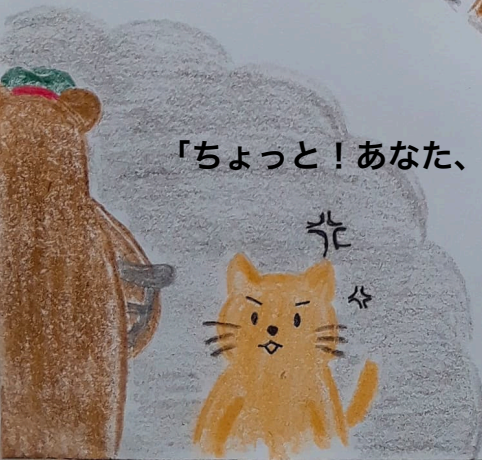 「ちょっと！あなた、